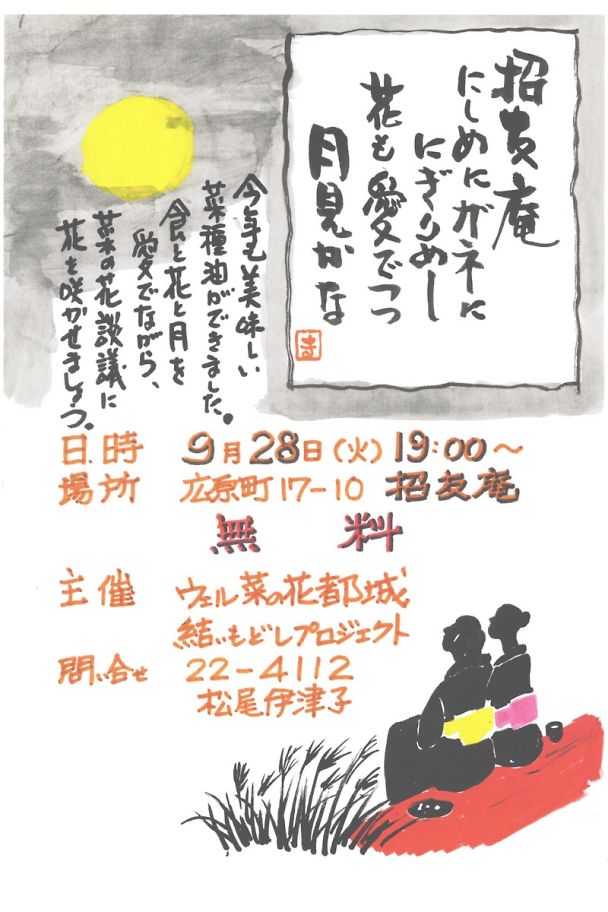 招友庵
にしめにガネに
にぎりめし
花も愛でつつ
月見かな
今年も美味しい
菜種油ができました。
食と花と月を
愛でながら、
菜の花談議に
花を咲かせましょう。
日時 9月28日(火) 19:00～
場所 広原町17-10 招友庵
無料
主催 ウェル菜の花都城
結いもどしプロジェクト
問い合せ 22-4112
松尾伊津子